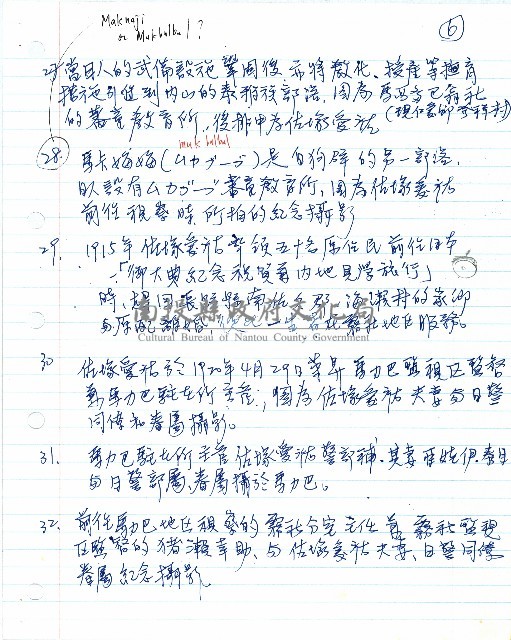 Maknaji
or Mukbulbul?
6
27 當日人的武備設施鞏固後,亦將教化、授產等撫育
措施引進到內山的泰雅族部落,圖為馬西多巴翁社
的蕃童教育所,後排中為佐塚愛祐
mukbulbul
28. (ムカブーブ)是白狗群的另一部落,
日人設有ムカブーブ蕃童教育所,圖為佐塚愛祐
前往視察時所拍的紀念攝影
29. 1915年佐塚愛祐率領五十名原住民前往日本
「御大典紀念祝賀有內地見學旅行」
時,趁回長野縣南佐久郡海瀨村的家鄉
與原配離婚
南投縣政府文化局
Cultural Bureau of Nantou County Government
30 佐塚愛祐於1920年4月29日榮昇馬力巴監視區監督
兼馬力巴駐在所主管;圖為佐塚愛祐夫妻與日警
同僚和眷屬攝影。
31. 馬力巴駐在所主管佐塚愛祐警部補、其妻亞娃伊泰目
與日警部屬、眷屬攝於馬力巴。
32. 前往馬力巴地區視察的霧社分室主任 霧社監視
區監督的猪瀨幸助、與佐塚愛祐夫妻、日警同僚
眷屬紀念攝影